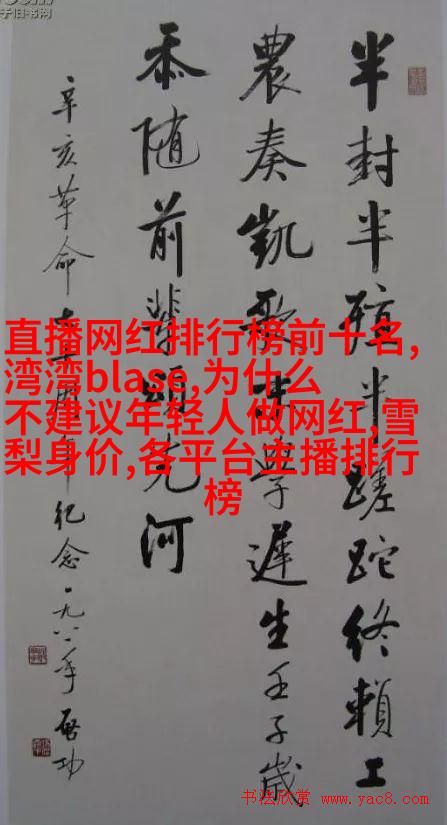 半封半殖半蹉跎终賴工
農奏凱歌末學遲生壬子歲
忝随前輩頌先河
辛亥革命七十周年纪念一九八一年启功
直播网红排行榜前十名,
湾湾blase,为什么
不建议年轻人做网红,雪
梨身价,各平台主播排行
榜
书法欣赏 www.yac8.com